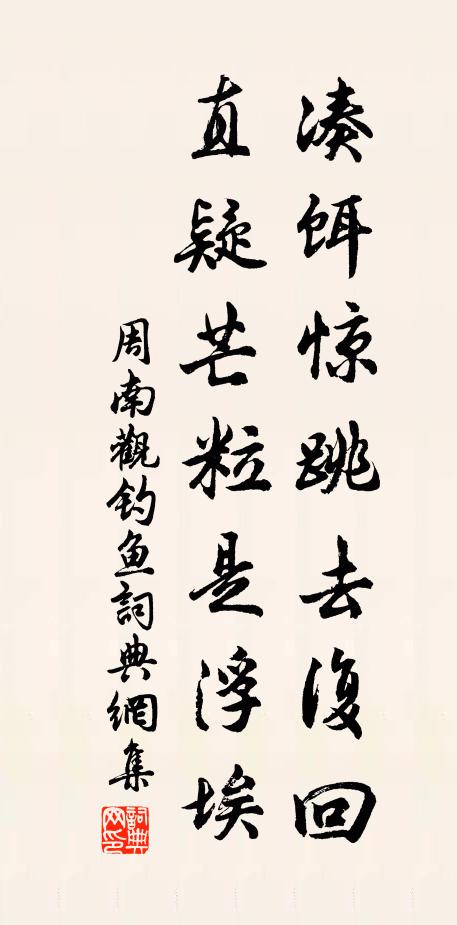 凑饵惊跳去復回
直疑芒粒是浮埃
周南觀钓鱼詞典網集
詞典網印